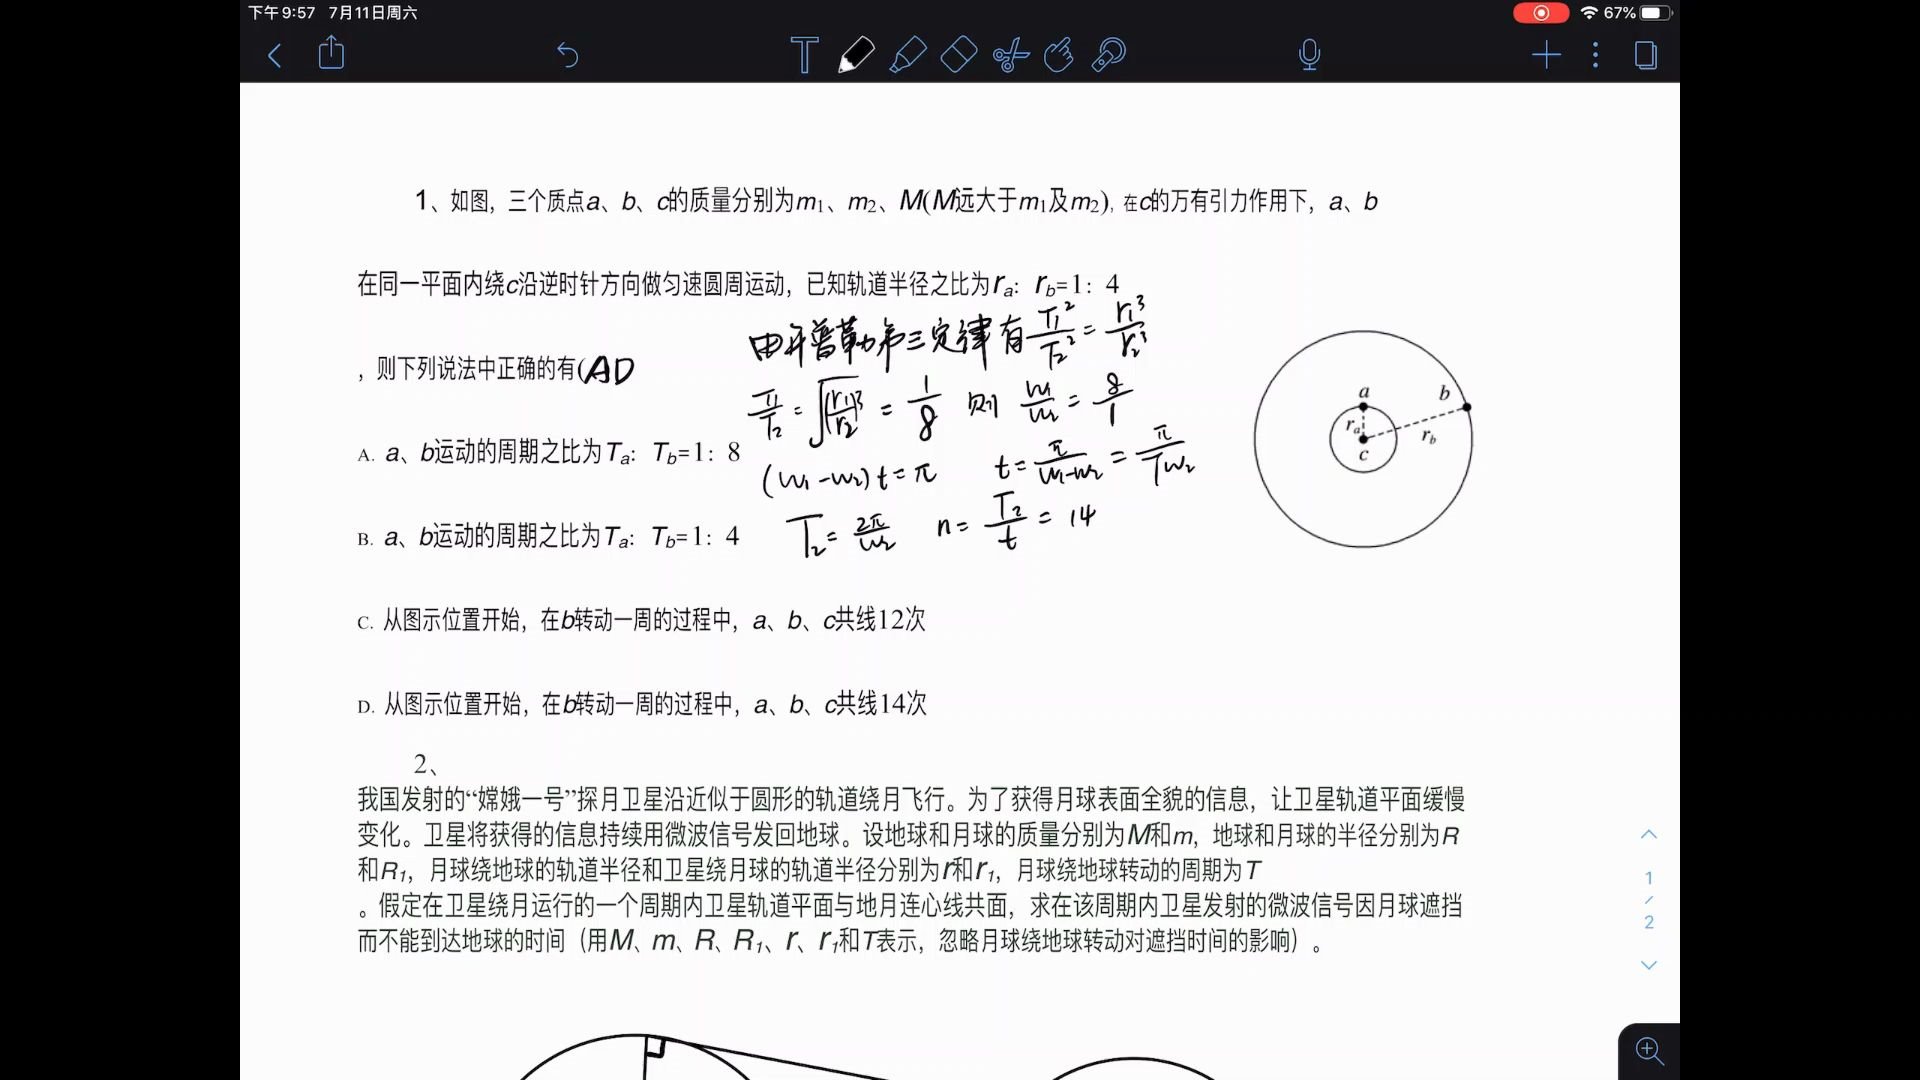 下午9:57 7月11日周六
67%
1、如图，三个质点a、b、c的质量分别为m₁、m₂、M(M远大于m₁及m₂)，在c的万有引力作用下，a、b
在同一平面内绕c沿逆时针方向做匀速圆周运动，已知轨道半径之比为rₐ：r_b=1：4
由开普勒第三定律有 T₁²/T₂² = r₁³/r₂³
，则下列说法中正确的有(AD
T₁/T₂ = √(r₁/r₂)³ = 1/8 则 w₁/w₂ = 8/1
A. a、b运动的周期之比为Tₐ：T_b=1：8
(w₁-w₂)t=π t=π/(w₁-w₂)=π/(7w₂)
B. a、b运动的周期之比为Tₐ：T_b=1：4
T₂=2π/w₂ n=T₂/t=14
C. 从图示位置开始，在b转动一周的过程中，a、b、c共线12次
D. 从图示位置开始，在b转动一周的过程中，a、b、c共线14次
a
b
rₐ
r_b
c
2、
我国发射的“嫦娥一号”探月卫星沿近似于圆形的轨道绕月飞行。为了获得月球表面全貌的信息，让卫星轨道平面缓慢
变化。卫星将获得的信息持续用微波信号发回地球。设地球和月球的质量分别为M和m，地球和月球的半径分别为R
和R₁，月球绕地球的轨道半径和卫星绕月球的轨道半径分别为r和r₁，月球绕地球转动的周期为T
。假定在卫星绕月运行的一个周期内卫星轨道平面与地月连心线共面，求在该周期内卫星发射的微波信号因月球遮挡
而不能到达地球的时间（用M、m、R、R₁、r、r₁和T表示，忽略月球绕地球转动对遮挡时间的影响）。
1
/
2